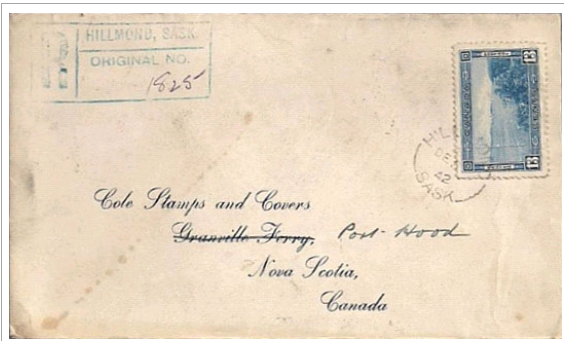 R HILLMOND, SASK.
ORIGINAL NO.
1825
CANADA
13 CENTS 13
HILLMOND
DE
42
SASK.
Cole Stamps and Covers
Granville Ferry, Port Hood
Nova Scotia,
Canada